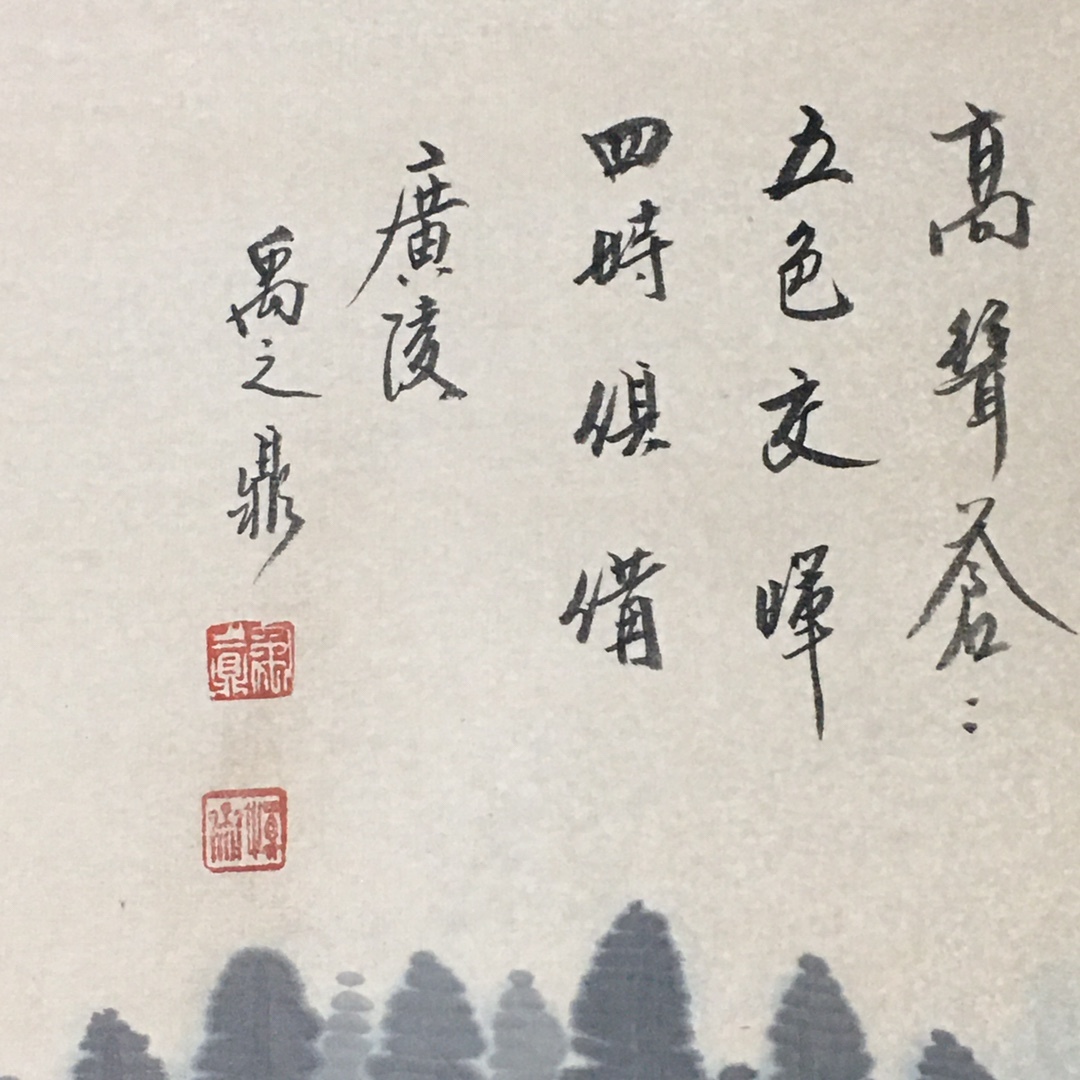 高聳蒼〻
五色交暉
四時俱備
廣陵
禹之鼎